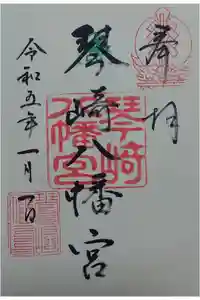 奉拝
琴崎八幡宮
令和五年一月一日
琴崎八幡宮